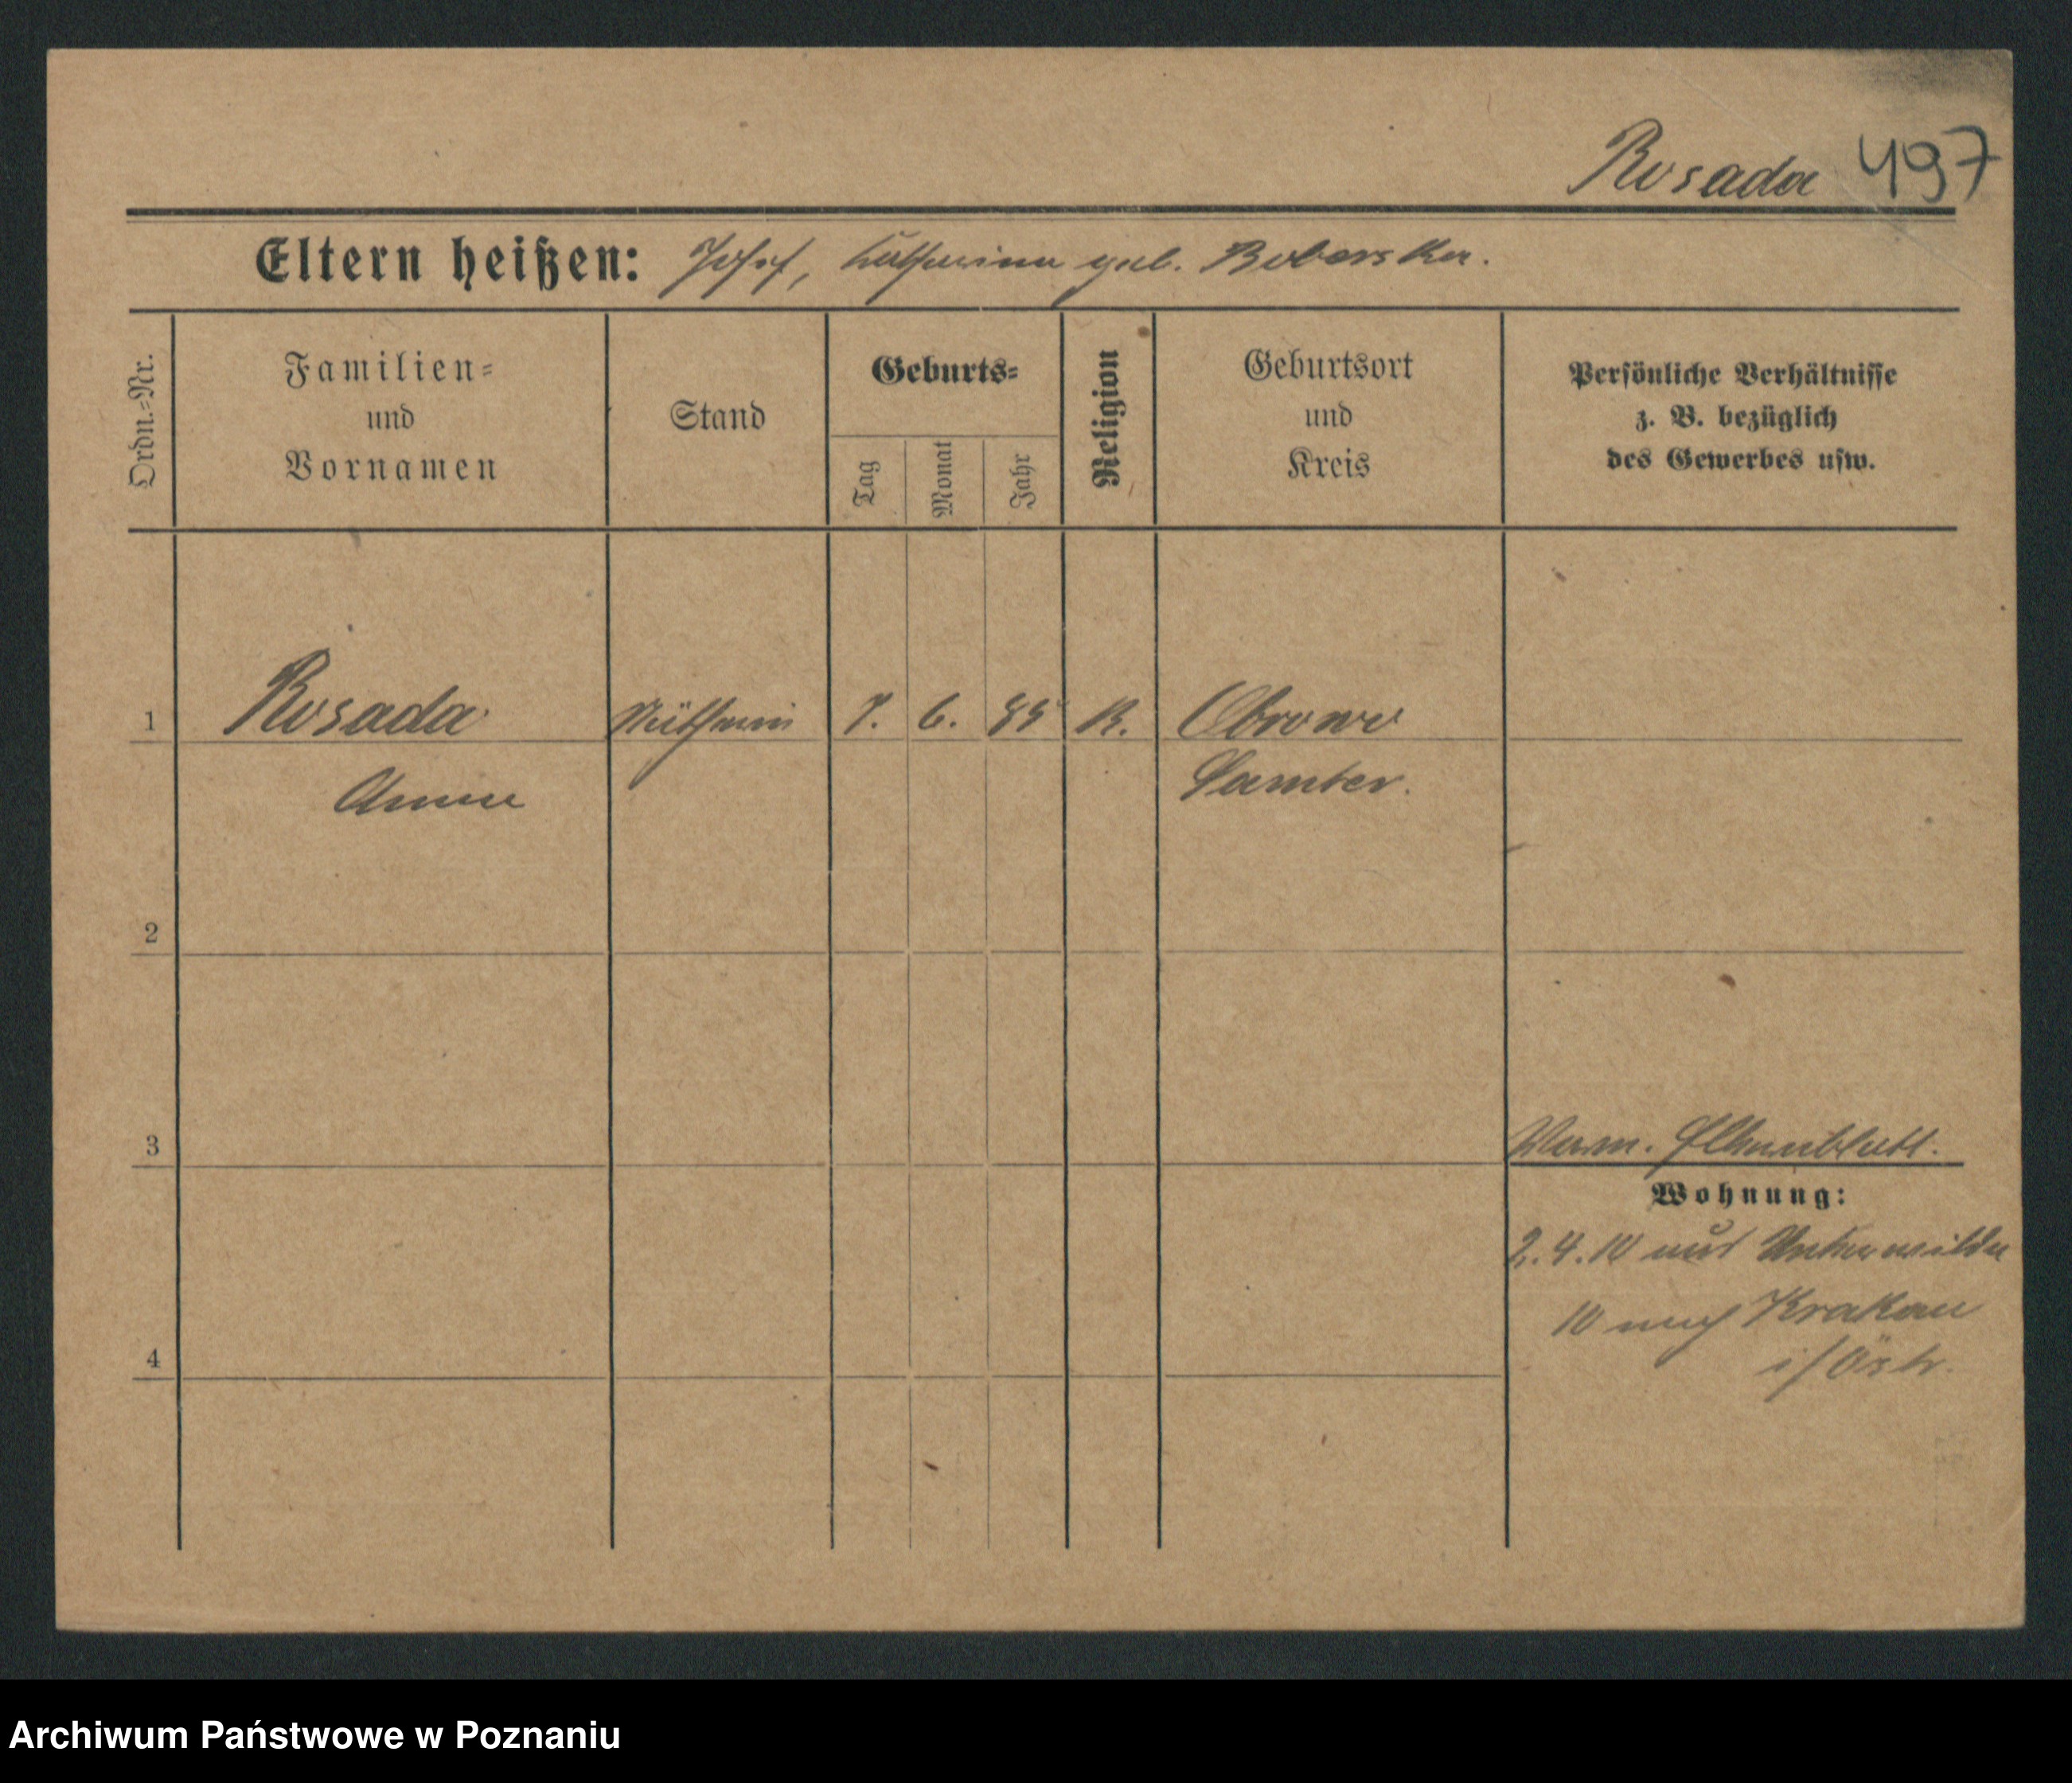 Rosada 497
Eltern heißen: Josef, Katharina geb. Boberska.
Ordn.-Nr.
Familien-
und
Vornamen
Stand
Geburts-
Tag
Monat
Jahr
Religion
Geburtsort
und
Kreis
Persönliche Verhältnisse
z. B. bezüglich
des Gewerbes usw.
1 Rosada Näherin 7. 6. 85 K. Obrowo
Anna Samter.
2
3
Wohnung:
2.4.10 aus Unterwilda
10 nach Krakau
i/Östr.
4
Archiwum Państwowe w Poznaniu